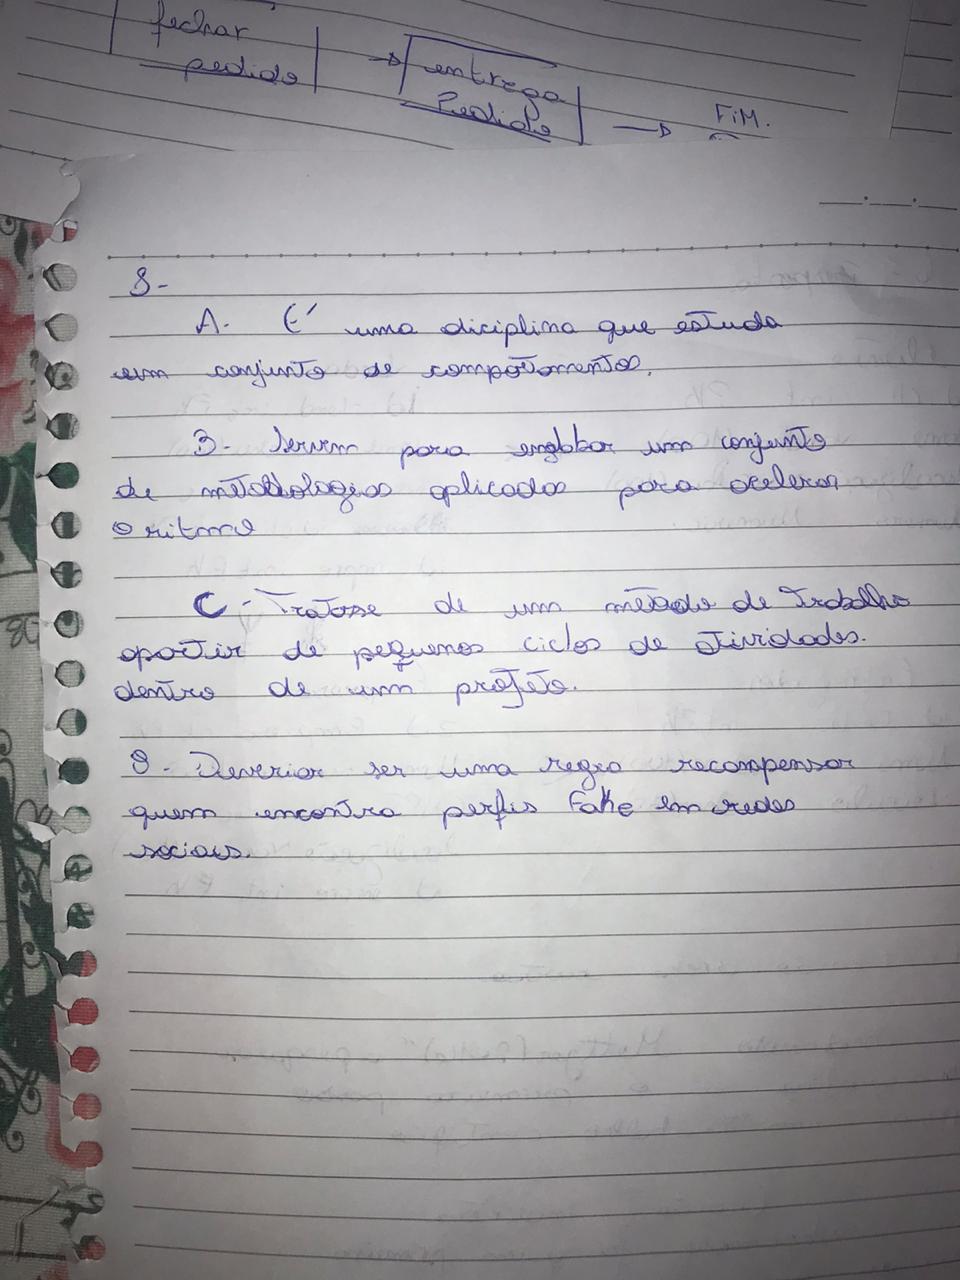 fechar
pedido
entrega
Pedido
FiM.
8-
A. É uma diciplina que estuda
um conjunto de comportamentos.
B- Servem para englobar um conjunto
de metodologias aplicadas para acelerar
o ritmo
C- Tratasse de um método de trabalho
apartir de pequenos ciclos de atividades.
dentro de um projeto.
9- Deveriar ser uma regra recompensar
quem encontra perfis Fake em redes
sociais.